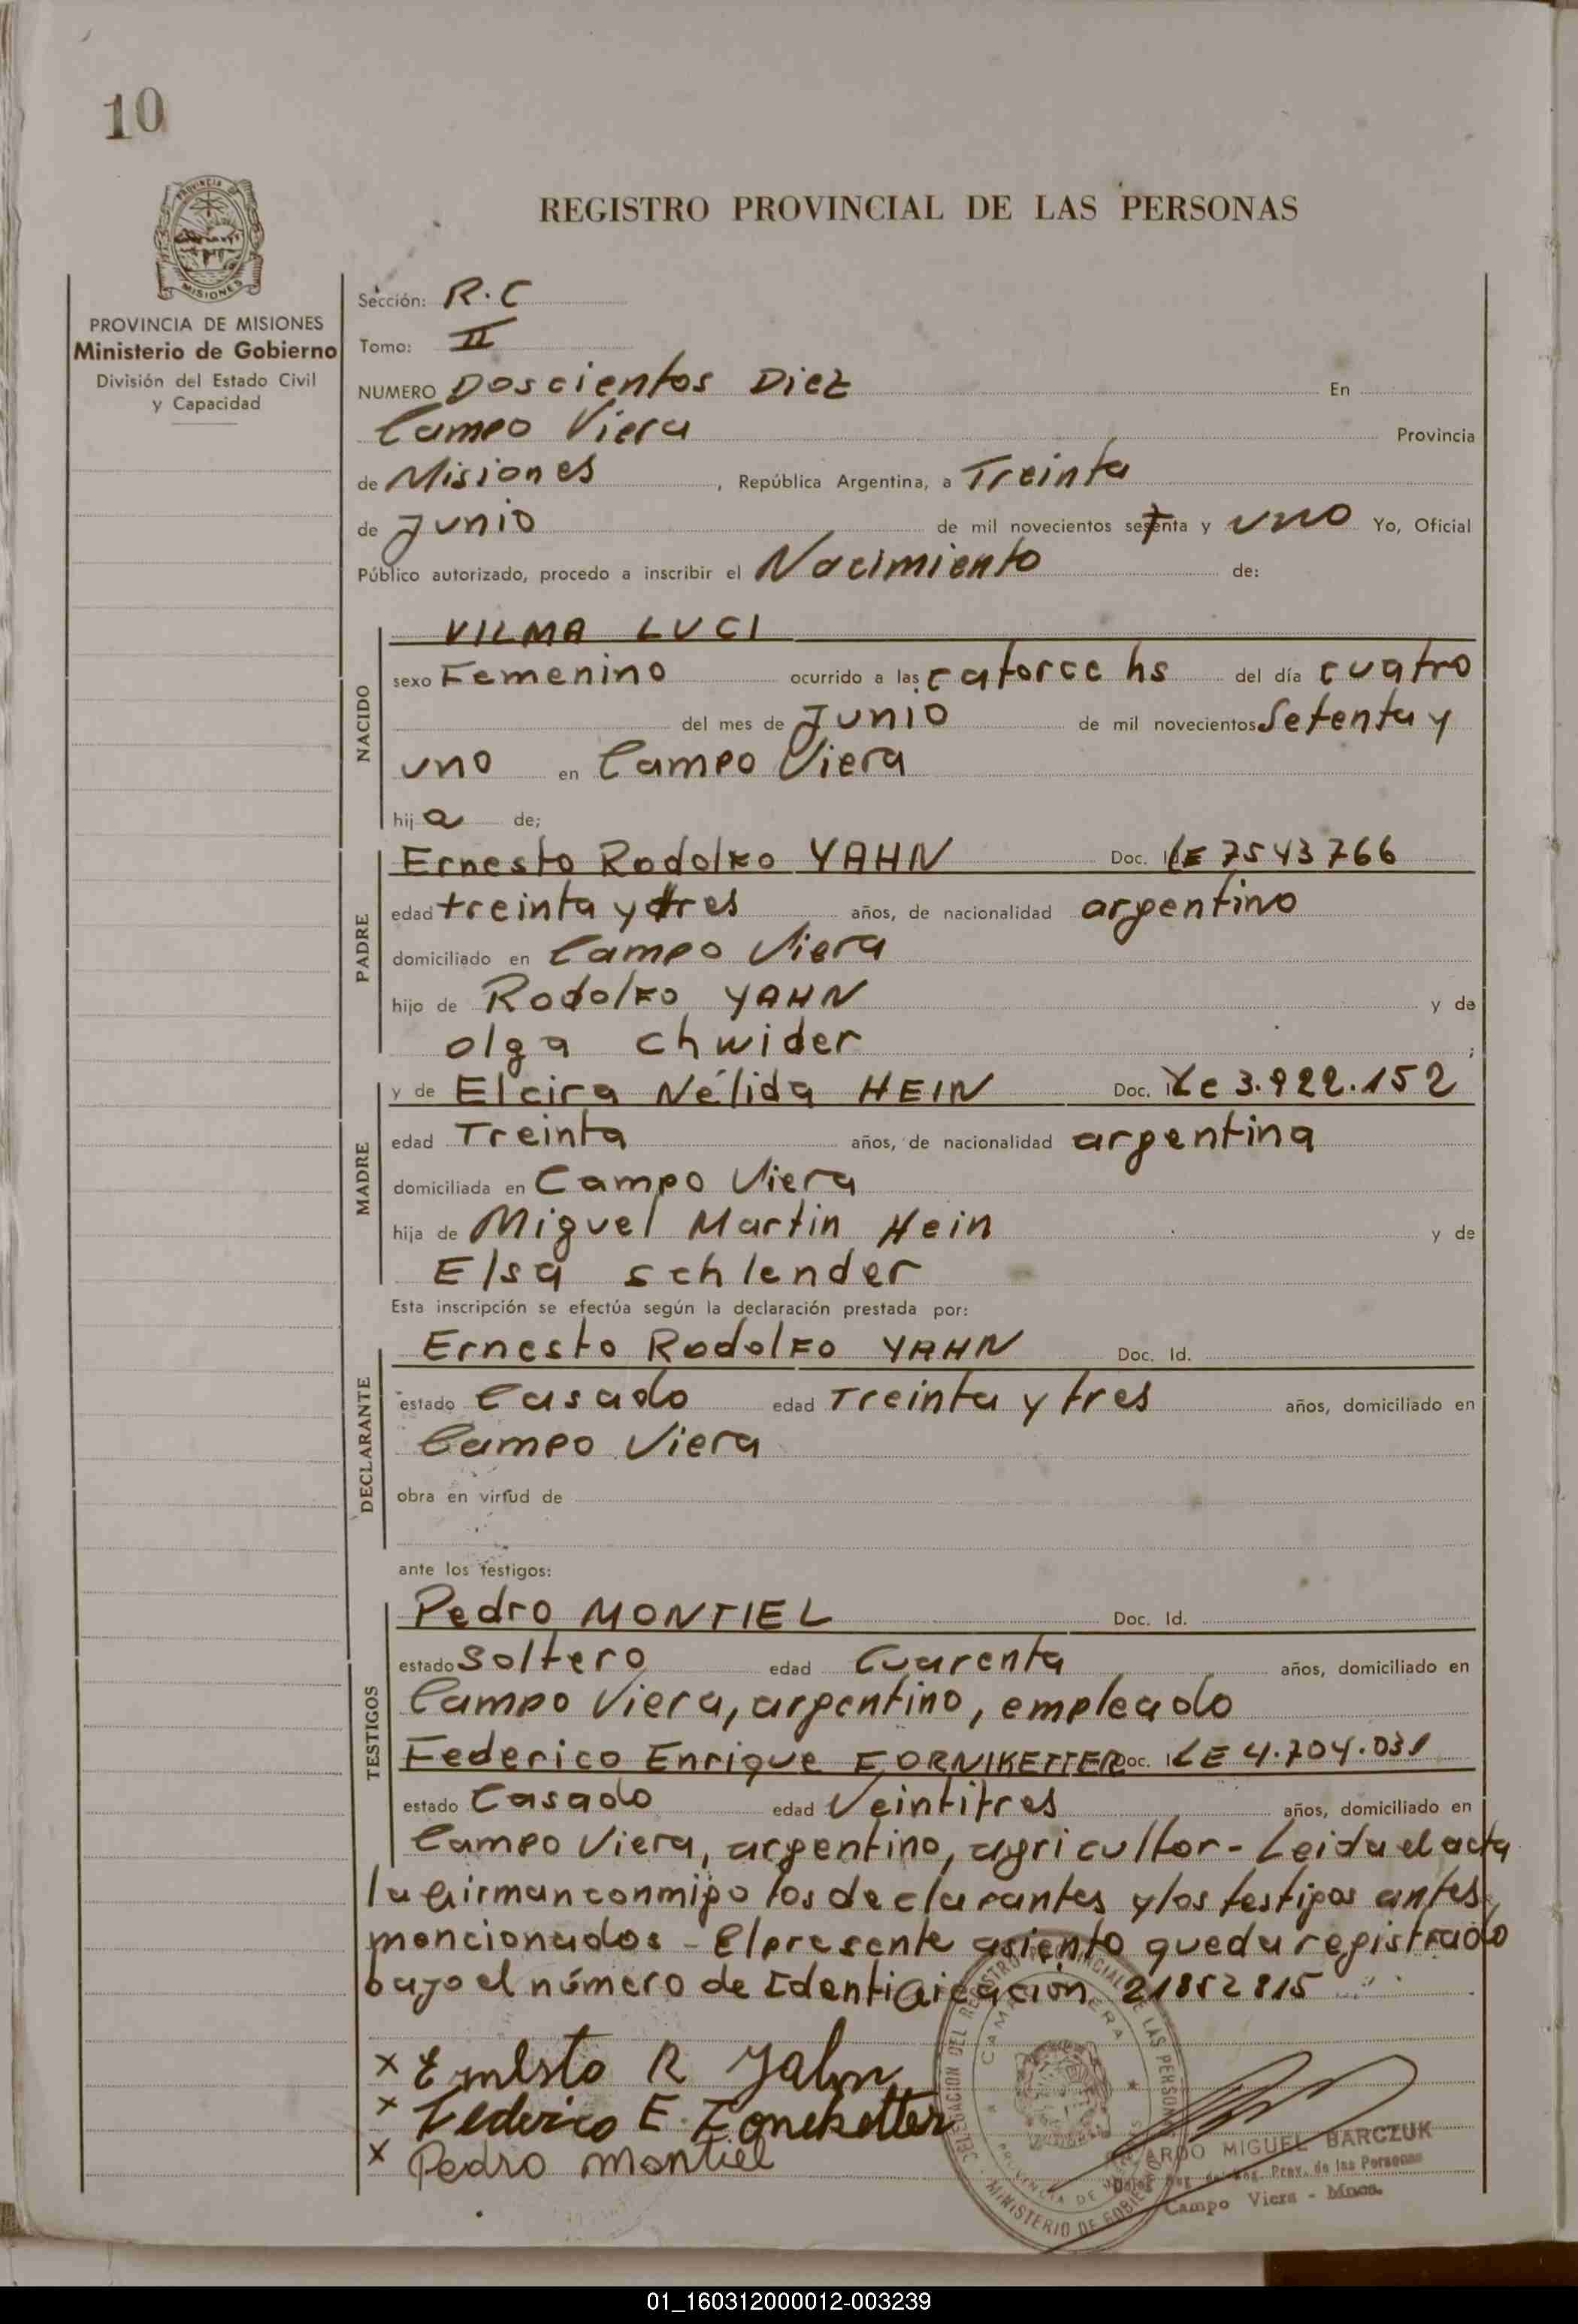 10
PROVINCIA DE
MISIONES
PROVINCIA DE MISIONES
Ministerio de Gobierno
División del Estado Civil
y Capacidad
REGISTRO PROVINCIAL DE LAS PERSONAS
Sección: R.C
Tomo: II
NUMERO Doscientos Diez En
Campo Viera Provincia
de Misiones, República Argentina, a Treinta
de Junio de mil novecientos setenta y uno Yo, Oficial
Público autorizado, procedo a inscribir el Nacimiento de:
NACIDO
VILMA LUCI
sexo Femenino ocurrido a las catorce hs del día cuatro
del mes de Junio de mil novecientos Setenta y
uno en Campo Viera
hija de;
PADRE
Ernesto Rodolfo YAHN Doc. LE 7543766
edad treinta y tres años, de nacionalidad argentino
domiciliado en Campo Viera
hijo de Rodolfo YAHN y de
Olga Chwider ;
MADRE
y de Elcira Nélida HEIN Doc. Le 3.922.152
edad Treinta años, de nacionalidad argentina
domiciliada en Campo Viera
hija de Miguel Martin Hein y de
Elsa Schlender
Esta inscripción se efectúa según la declaración prestada por:
DECLARANTE
Ernesto Rodolfo YAHN Doc. Id.
estado Casado edad Treinta y tres años, domiciliado en
Campo Viera
obra en virtud de
ante los testigos:
TESTIGOS
Pedro MONTIEL Doc. Id.
estado Soltero edad Cuarenta años, domiciliado en
Campo Viera, argentino, empleado
Federico Enrique Doc. LE 4.704.031
estado Casado edad Veintitres años, domiciliado en
Campo Viera, argentino, agricultor - Leida el acta
la firman conmigo los declarantes y los testigos antes
mencionados - El presente asiento queda registrado
bajo el número de Identificación 21852815
x Ernesto R Yahn
x Federico E.
x Pedro Montiel
DELEGACION DEL REGISTRO PROVINCIAL DE LAS PERSONAS
CAMPO VIERA
PROVINCIA DE
MINISTERIO DE GOBIERNO
MIGUEL BARCZUK
Prov. de las Personas
Campo Viera - Mnes.
01_160312000012-003239